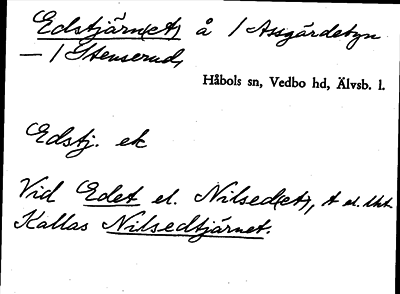 Edstjärn(et) å / Assgärdebyn
— / Stenserud,
Håbols sn, Vedbo hd, Älvsb. l.
Edstj. ek
Vid Edet el. Nilsed(et), t el.
Kallas Nilsedtjärnet.